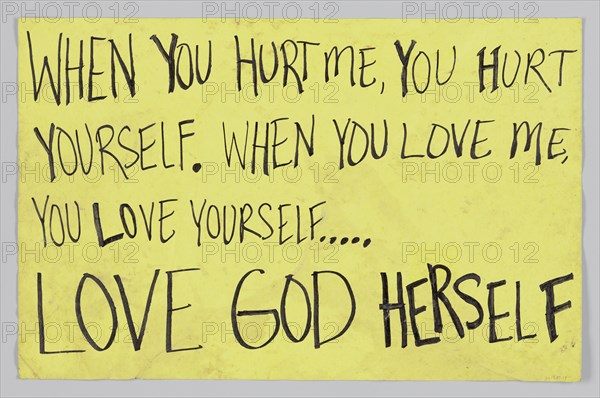 WHEN YOU HURT ME, YOU HURT
YOURSELF. WHEN YOU LOVE ME,
YOU LOVE YOURSELF.....
LOVE GOD HERSELF
PHOTO 12